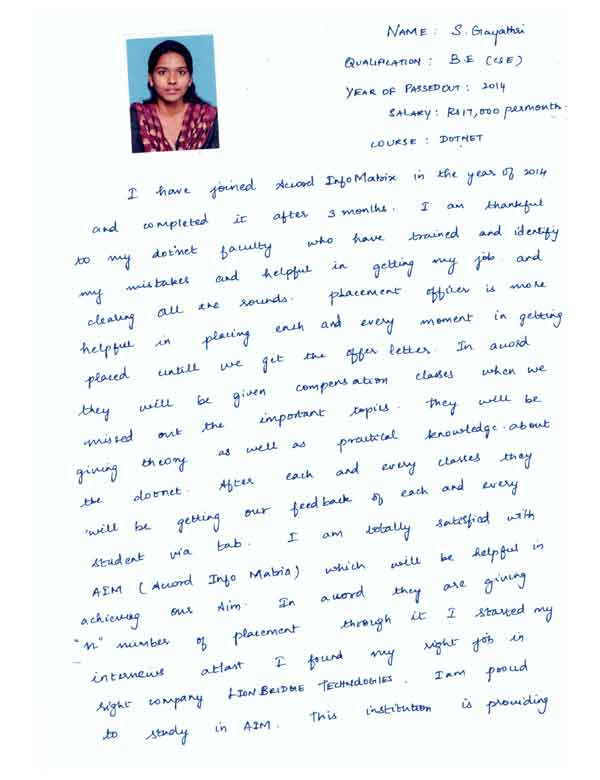 NAME : S. Gayathri
QUALIFICATION : B.E (CSE)
YEAR OF PASSEDOUT : 2014
SALARY : Rs17,000 permonth.
COURSE : DOTNET
I have joined Accord InfoMatrix in the year of 2014
and completed it after 3 months. I am thankful
to my dotnet faculty who have trained and identify
my mistakes and helpful in getting my job and
clearing all the rounds. placement officer is more
helpful in placing each and every moment in getting
placed untill we get the offer letter. In accord
they will be given compensation classes when we
missed out the important topics. They will be
giving theory as well as practical knowledge about
the dotnet. After each and every classes they
will be getting our feedback of each and every
student via tab. I am totally satisfied with
AIM (Accord Info Matrix) which will be helpful in
achieving our Aim. In accord they are giving
"n" number of placement through it I started my
interviews atlast I found my right job in
right company LIONBRIDGE TECHNOLOGIES. I am proud
to study in AIM. This institution is providing